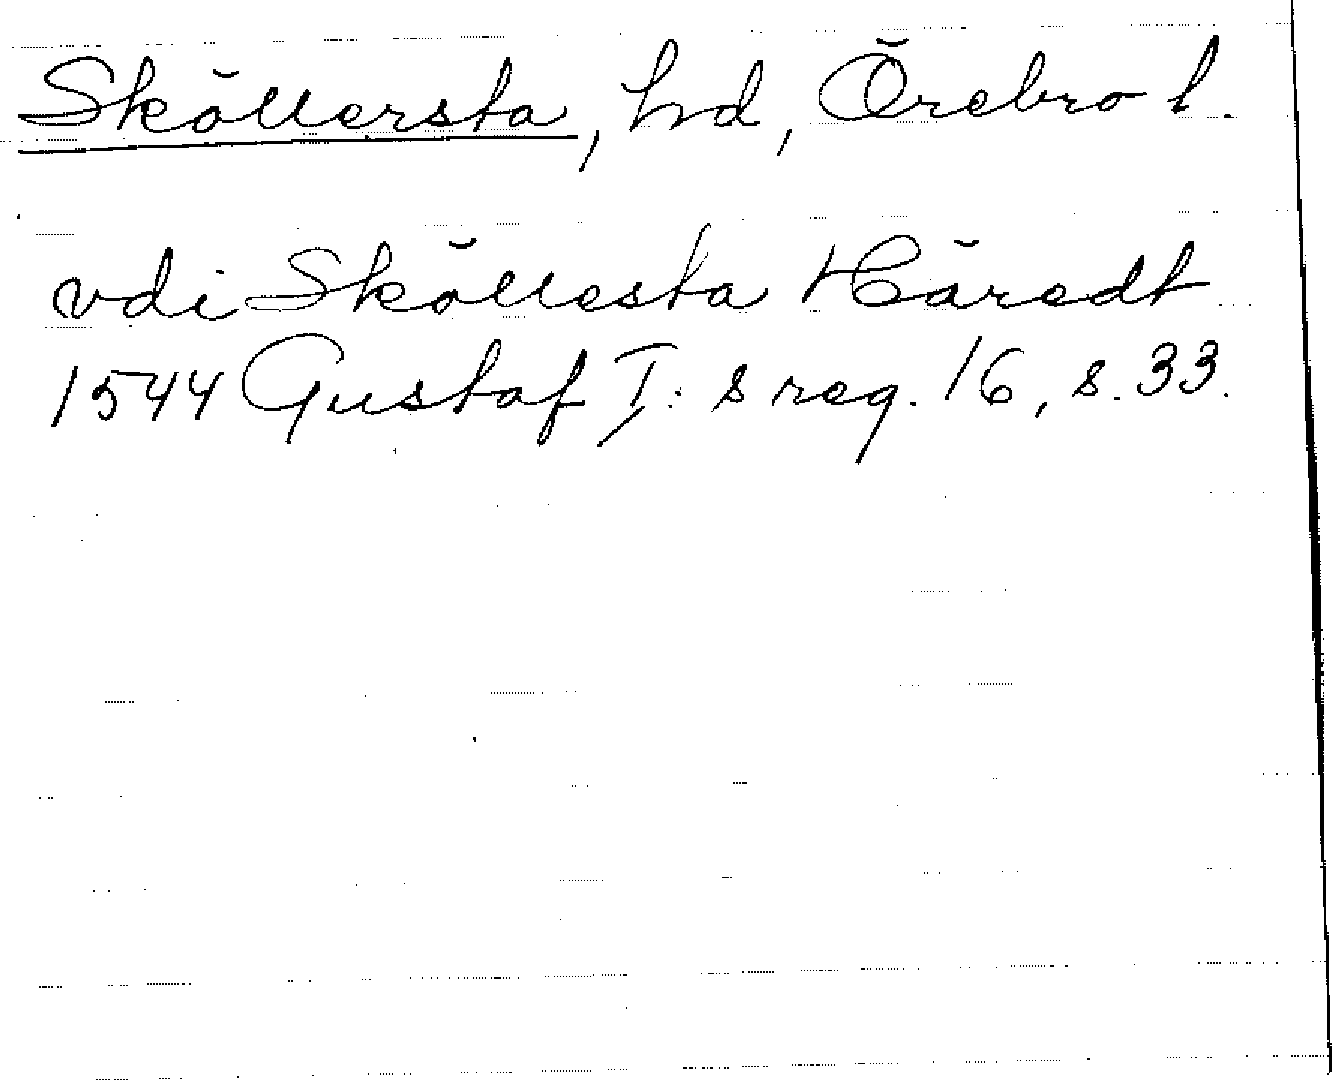 Sköllersta, hd, Örebro l.
vdi Sköllesta Häredt
1544 Gustaf I:s reg. 16, s. 33.